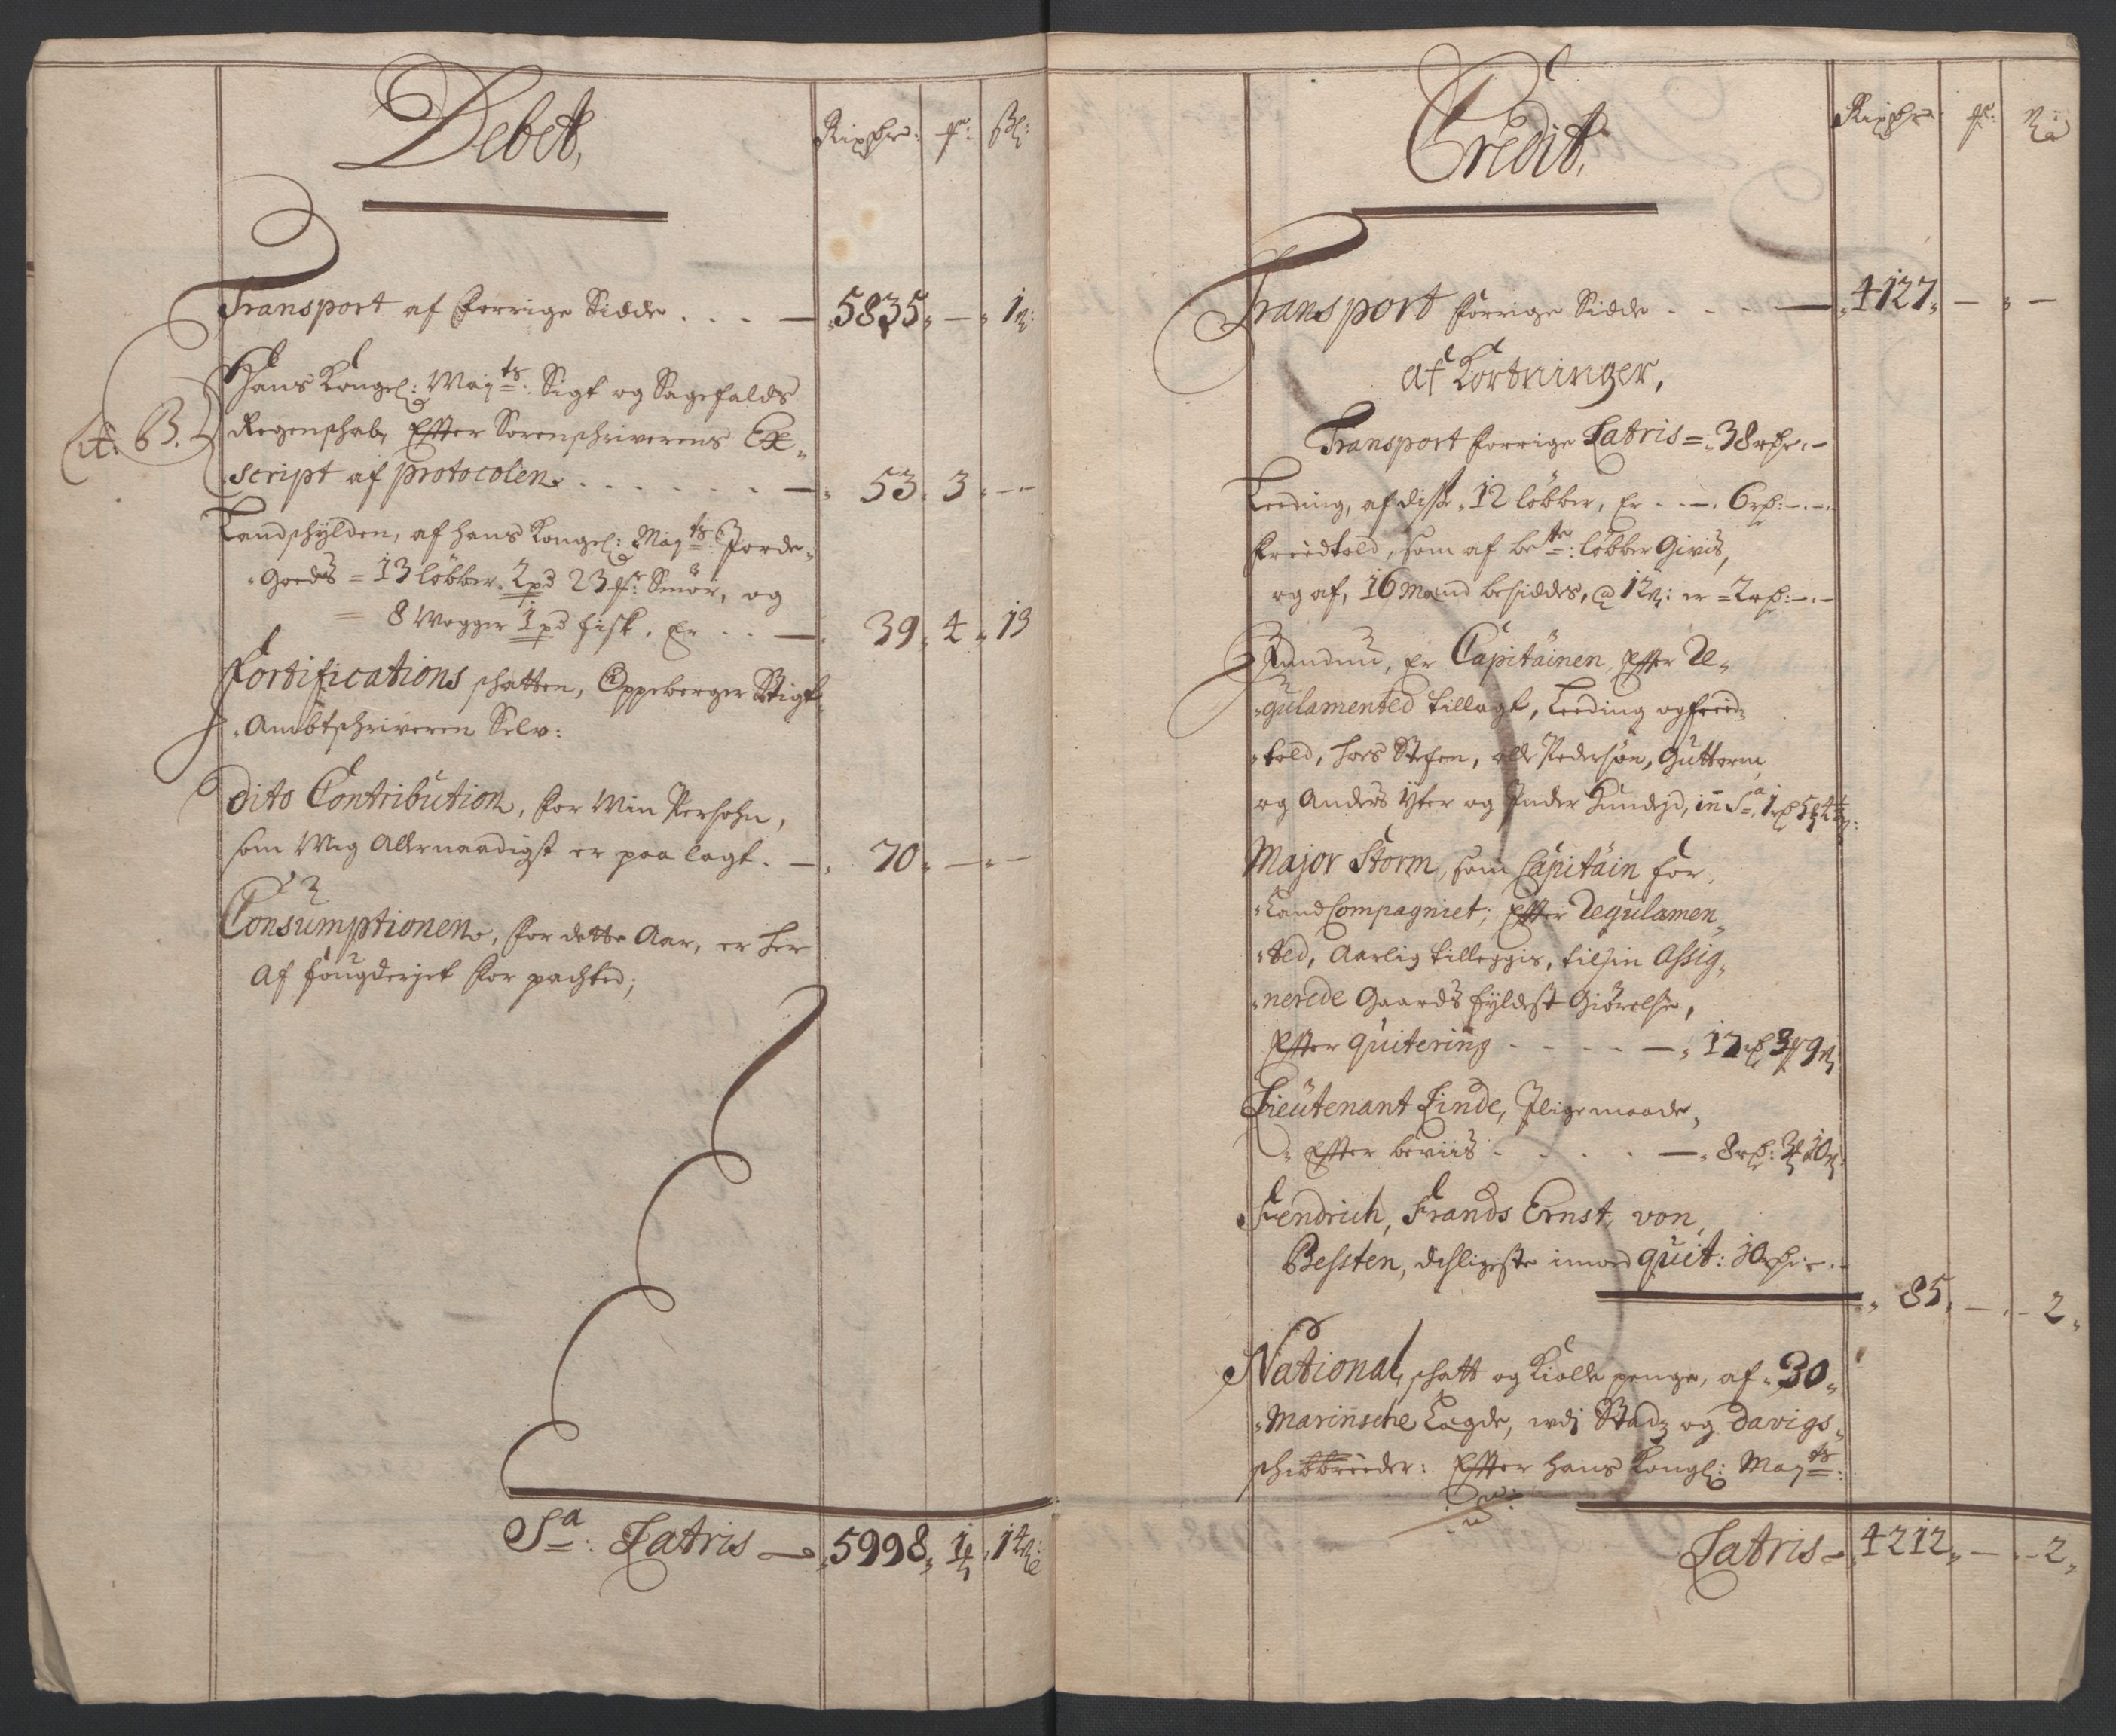 Debet,
Rixdlr: ort: sk:
Transport af Forrige Sidde . . . — 5835 — 1 sk:
Lit: B.
Hans Kongel: Mayts: Sigt og Sagefalds
Regenschab, Effter Sorenschriverens Ex-
script af protocolen . . . . . . — 53 . 3 . —
Landschylden, af hans Kongel: Mayts: Jorde-
Goeds = 13 løbber 2 pd 23 Smør, og
8 Wogger 1 pd fisk, Er . . — 39 . 4 . 13
Fortifications schatten, Oppeberger Stigt
Ambtschriveren Selv:
Dito Contribution, for Min Persohn,
som Mig Allernaadigst er paa lagt. — 70 . — . —
Consumptionen, for dette Aar, er her
Af fougderjet for pachted;
Sa: Latris — 5998 . 1 . 14
Credit,
Rixdlr: ort: sk
Transport forrige Sidde . . . — 4127 . — . —
Af Kortninger,
Transport forrige Latris = 38 rdr. —
Leeding, af disse 12 løbber, Er . . — . 6 rd: —
freedtold, som af bete: løbber Givis,
og af, 16 Mand besiddes, @ 12 sk: er = 2 rd: —
Endnu, er Capitainen, effter Re-
gulamented tillagt, Leeding og freed-
told, hos Steffen, Olle Pedersøn, Guttorm
og Anders Yter og Inder Hundejd, in Sa, 1 rd 5 4½ sk:
Major Storm, som Capitain for
Land Compagniet; effter Regulamen-
ted, Aarlig tilleggis, til sin Assig-
nerede Gaards fyldest Giørelse,
Effter quitering . . . . — 17 rd 3 9 sk
Lieutenant Linde, J lige maade,
Effter beviis . . . . — 8 rd: 3 10 sk
Fendrich, Frands Ernst von
Bessten, desligeste imod quit: 10 rdr: —
85 . — . 2
National, schatt og Kiolle penge, af 30
Marinsche Lægde, udj Stadz og Davigs-
schibbreeder: Effter Hans Kongl: Mayts:
Latris — 4212 . — . 2